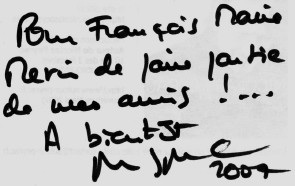 Pour François Marie
Merci de faire partie
de mes amis !...
A bientôt
2007